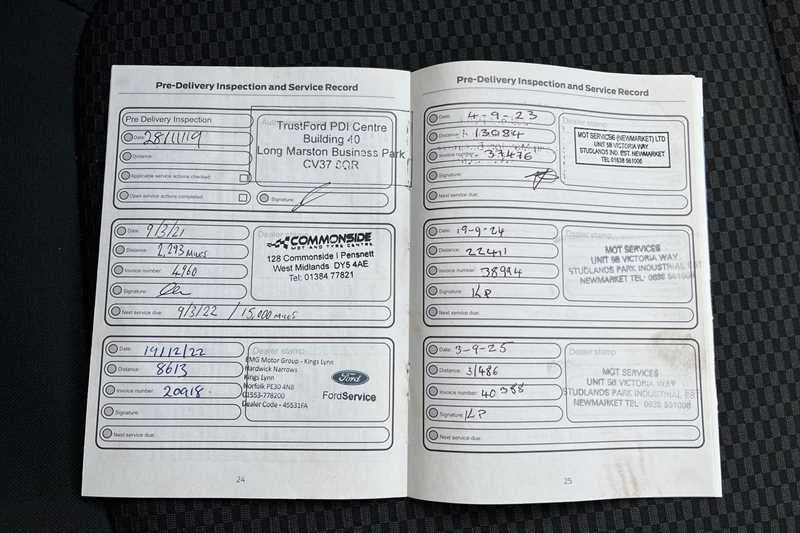 Pre-Delivery Inspection and Service Record
Pre Delivery Inspection
Date: 28/11/19
Distance:
Applicable service actions checked:
Open service actions completed:
TrustFord PDI Centre
Building 40
Long Marston Business Park
CV37 8QR
Signature:
Date: 9/3/21
Distance: 2,293 MILES
Invoice number: 4960
Signature:
Next service due: 9/3/22 / 15,000 MILES
Dealer stamp
COMMONSIDE
MOT AND TYRE CENTRE
128 Commonside I Pensnett
West Midlands DY5 4AE
Tel: 01384 77821
Date: 19/12/22
Distance: 8613
Invoice number: 20918
Signature:
Next service due:
Dealer stamp
EMG Motor Group - Kings Lynn
Hardwick Narrows
Kings Lynn
Norfolk PE30 4NB
01553-778200
Dealer Code - 45531FA
Ford
FordService
24
Pre-Delivery Inspection and Service Record
Date: 4-9-23
Distance: 13084
Invoice number: 37476
Signature:
Next service due:
Dealer stamp
MOT SERVICES (NEWMARKET) LTD
UNIT 9B VICTORIA WAY
STUDLANDS IND. EST. NEWMARKET
TEL 01638 561006
Date: 19-9-24
Distance: 22411
Invoice number: 38994
Signature: KP
Next service due:
Dealer stamp
MOT SERVICES
UNIT 9B VICTORIA WAY
STUDLANDS PARK INDUSTRIAL EST
NEWMARKET TEL
Date: 3-9-25
Distance: 31486
Invoice number: 40388
Signature: KP
Next service due:
Dealer stamp
MOT SERVICES
UNIT 9B VICTORIA WAY
STUDLANDS PARK INDUSTRIAL EST
NEWMARKET TEL 0638 561006
25